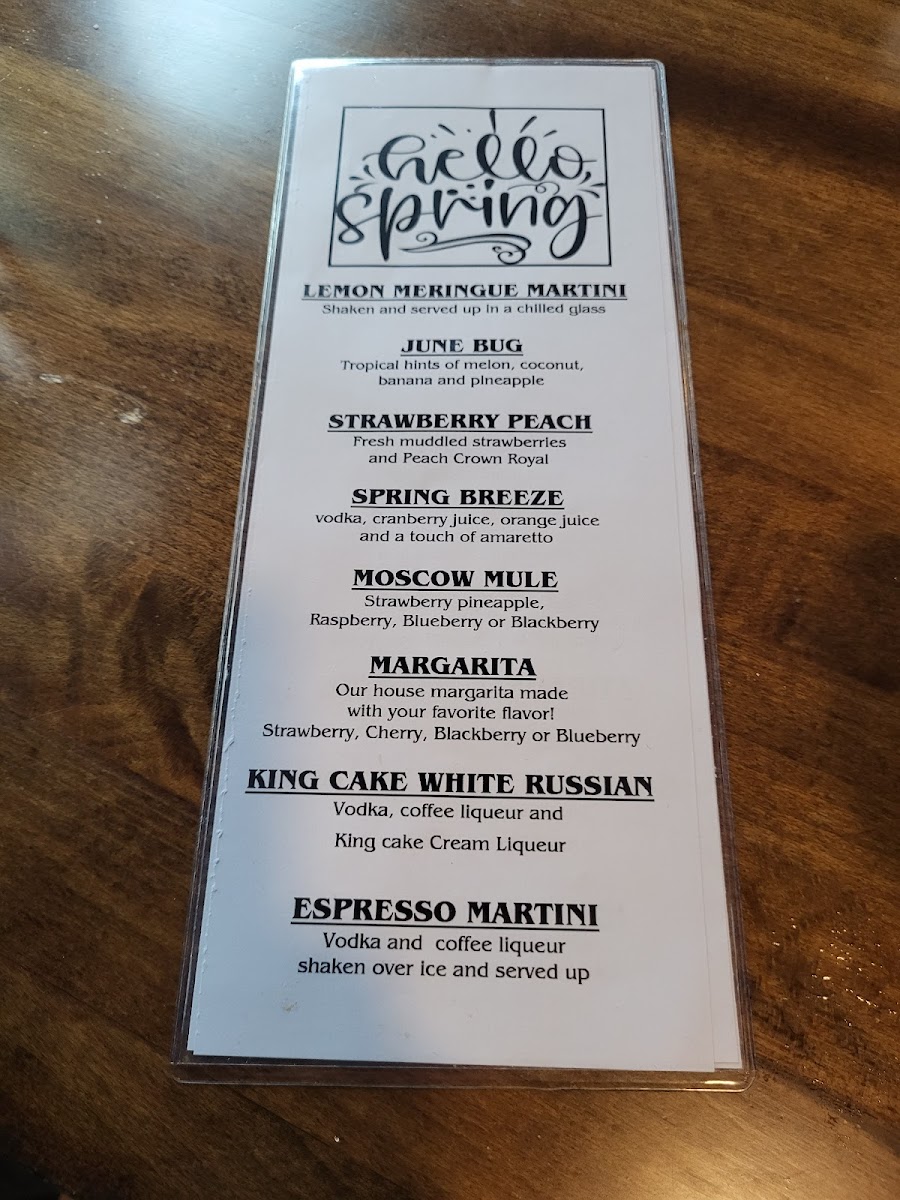 hello
spring
LEMON MERINGUE MARTINI
Shaken and served up in a chilled glass
JUNE BUG
Tropical hints of melon, coconut,
banana and pineapple
STRAWBERRY PEACH
Fresh muddled strawberries
and Peach Crown Royal
SPRING BREEZE
vodka, cranberry juice, orange juice
and a touch of amaretto
MOSCOW MULE
Strawberry pineapple,
Raspberry, Blueberry or Blackberry
MARGARITA
Our house margarita made
with your favorite flavor!
Strawberry, Cherry, Blackberry or Blueberry
KING CAKE WHITE RUSSIAN
Vodka, coffee liqueur and
King cake Cream Liqueur
ESPRESSO MARTINI
Vodka and coffee liqueur
shaken over ice and served up